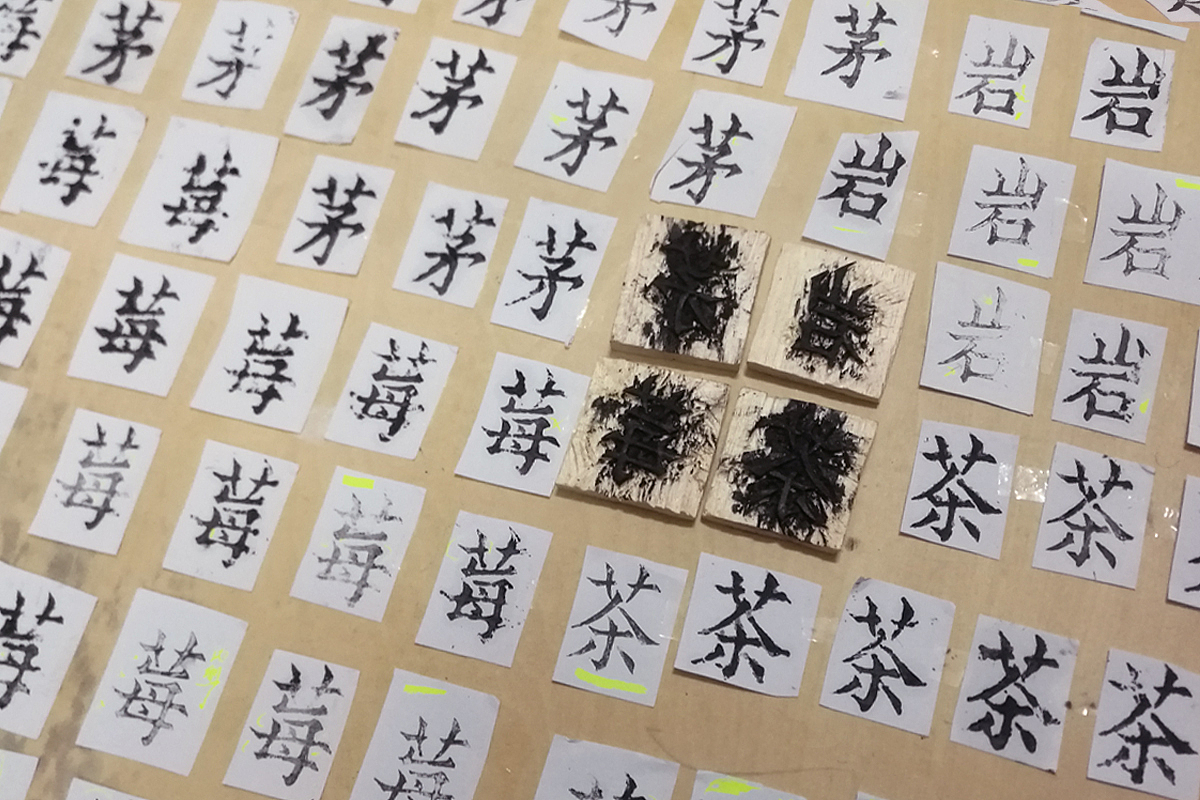 茅 茅 茅 岩 岩
茅 茅 茅 茅 茅 茅 岩 岩 岩
莓 莓 茅 茅 茅 岩 岩
莓 莓 莓 莓 莓 茶 茶
莓 莓 莓 莓 茶 茶 茶 茶 茶
莓 莓 莓 莓